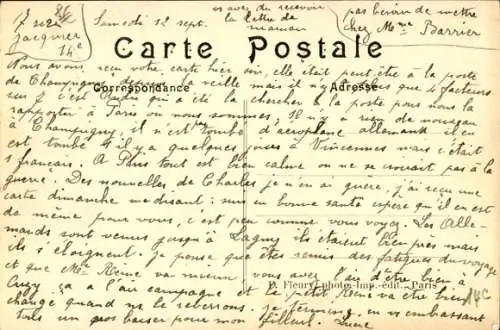 7 rue
Jacquier
14e
Samedi 12 sept.
vs avez du recevoir
la lettre de
maman
pas besoin de mettre
chez Mme Barrier
Carte Postale
Correspondance
Adresse
Nous avons reçu votre carte hier soir, elle était peut être à la poste
de Champigny depuis la veille mais il n'y a plus que 4 facteurs
c'est qui a été la chercher à la poste pour nous la
rapporter à Paris où nous sommes; Il n'y a rien de nouveau
à Champigny, il n'est tombé d'aeroplane allemand il en
est tombé il y a quelques jours à Vincennes mais c'était
1 français. A Paris tout est bien calme on ne se croirait pas à la
guerre. Des nouvelles de Charles je n'en ai guère, j'ai reçu une
carte dimanche me disant: suis en bonne santé espère qu'il en est
de même pour vous, c'est peu comme vous voyez. Les Alle-
mands sont venus jusqu'à Lagny ils étaient bien près mais
ils s'éloignent. Je pense que êtes remis des fatigues du voyage
et que Mr René va mieux. vous avez l'air d'être bien à
Cuzy ça a l'air campagne et le petit René va être bien
changé quand ns le reverrons. Je termine en vs embrassant
tous un gros baiser pour mon filleul. Lucie
D. Fleury, photos-imp. édit., Paris